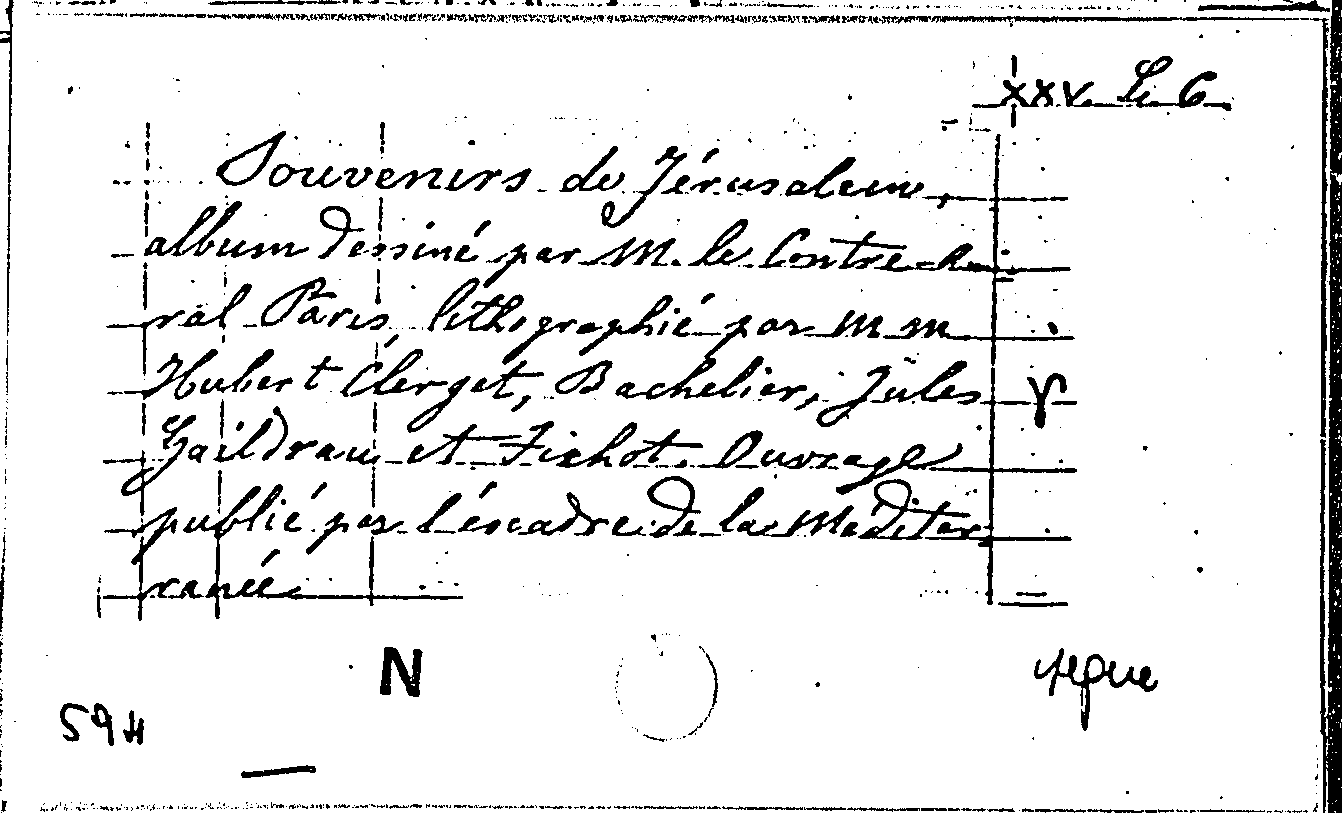 XXV. Le 6
Souvenirs de Jérusalem,
album dessiné par M. le Contre-Ami
ral Pâris, lithographié par MM.
Hubert Clerget, Bachelier, Jules
Gaildrau et Fichot. Ouvrage
publié par l'éscadre de la Méditer
ranée.
N
segue
594